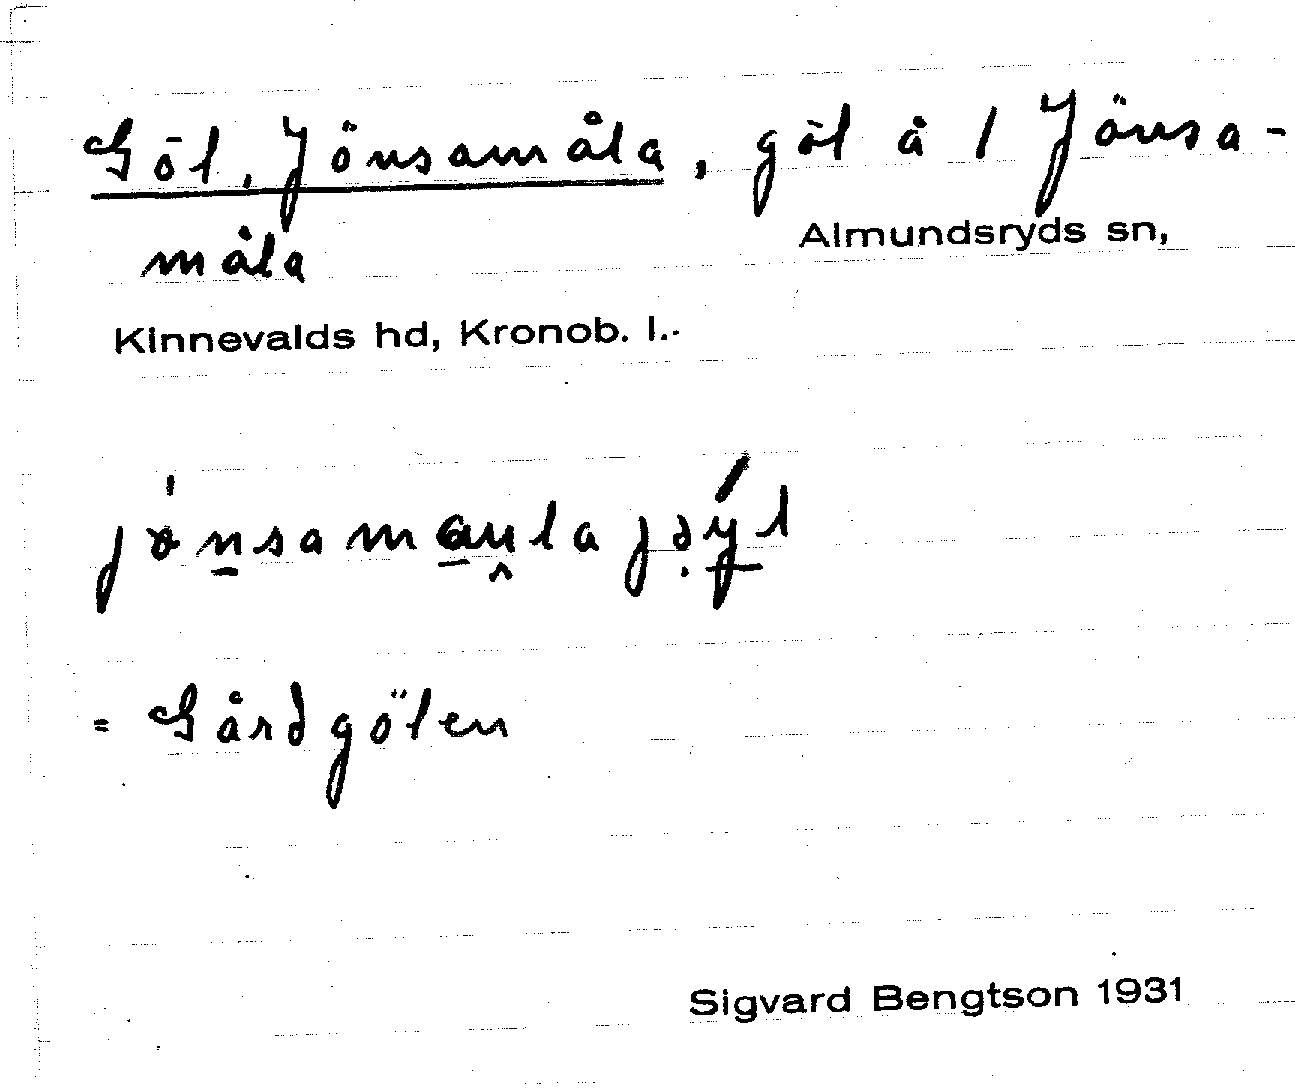 Göl, Jönsamåla, göl å 1 Jönsa-
måla
Almundsryds sn,
Kinnevalds hd, Kronob. l.
= Gårdgölen
Sigvard Bengtson 1931